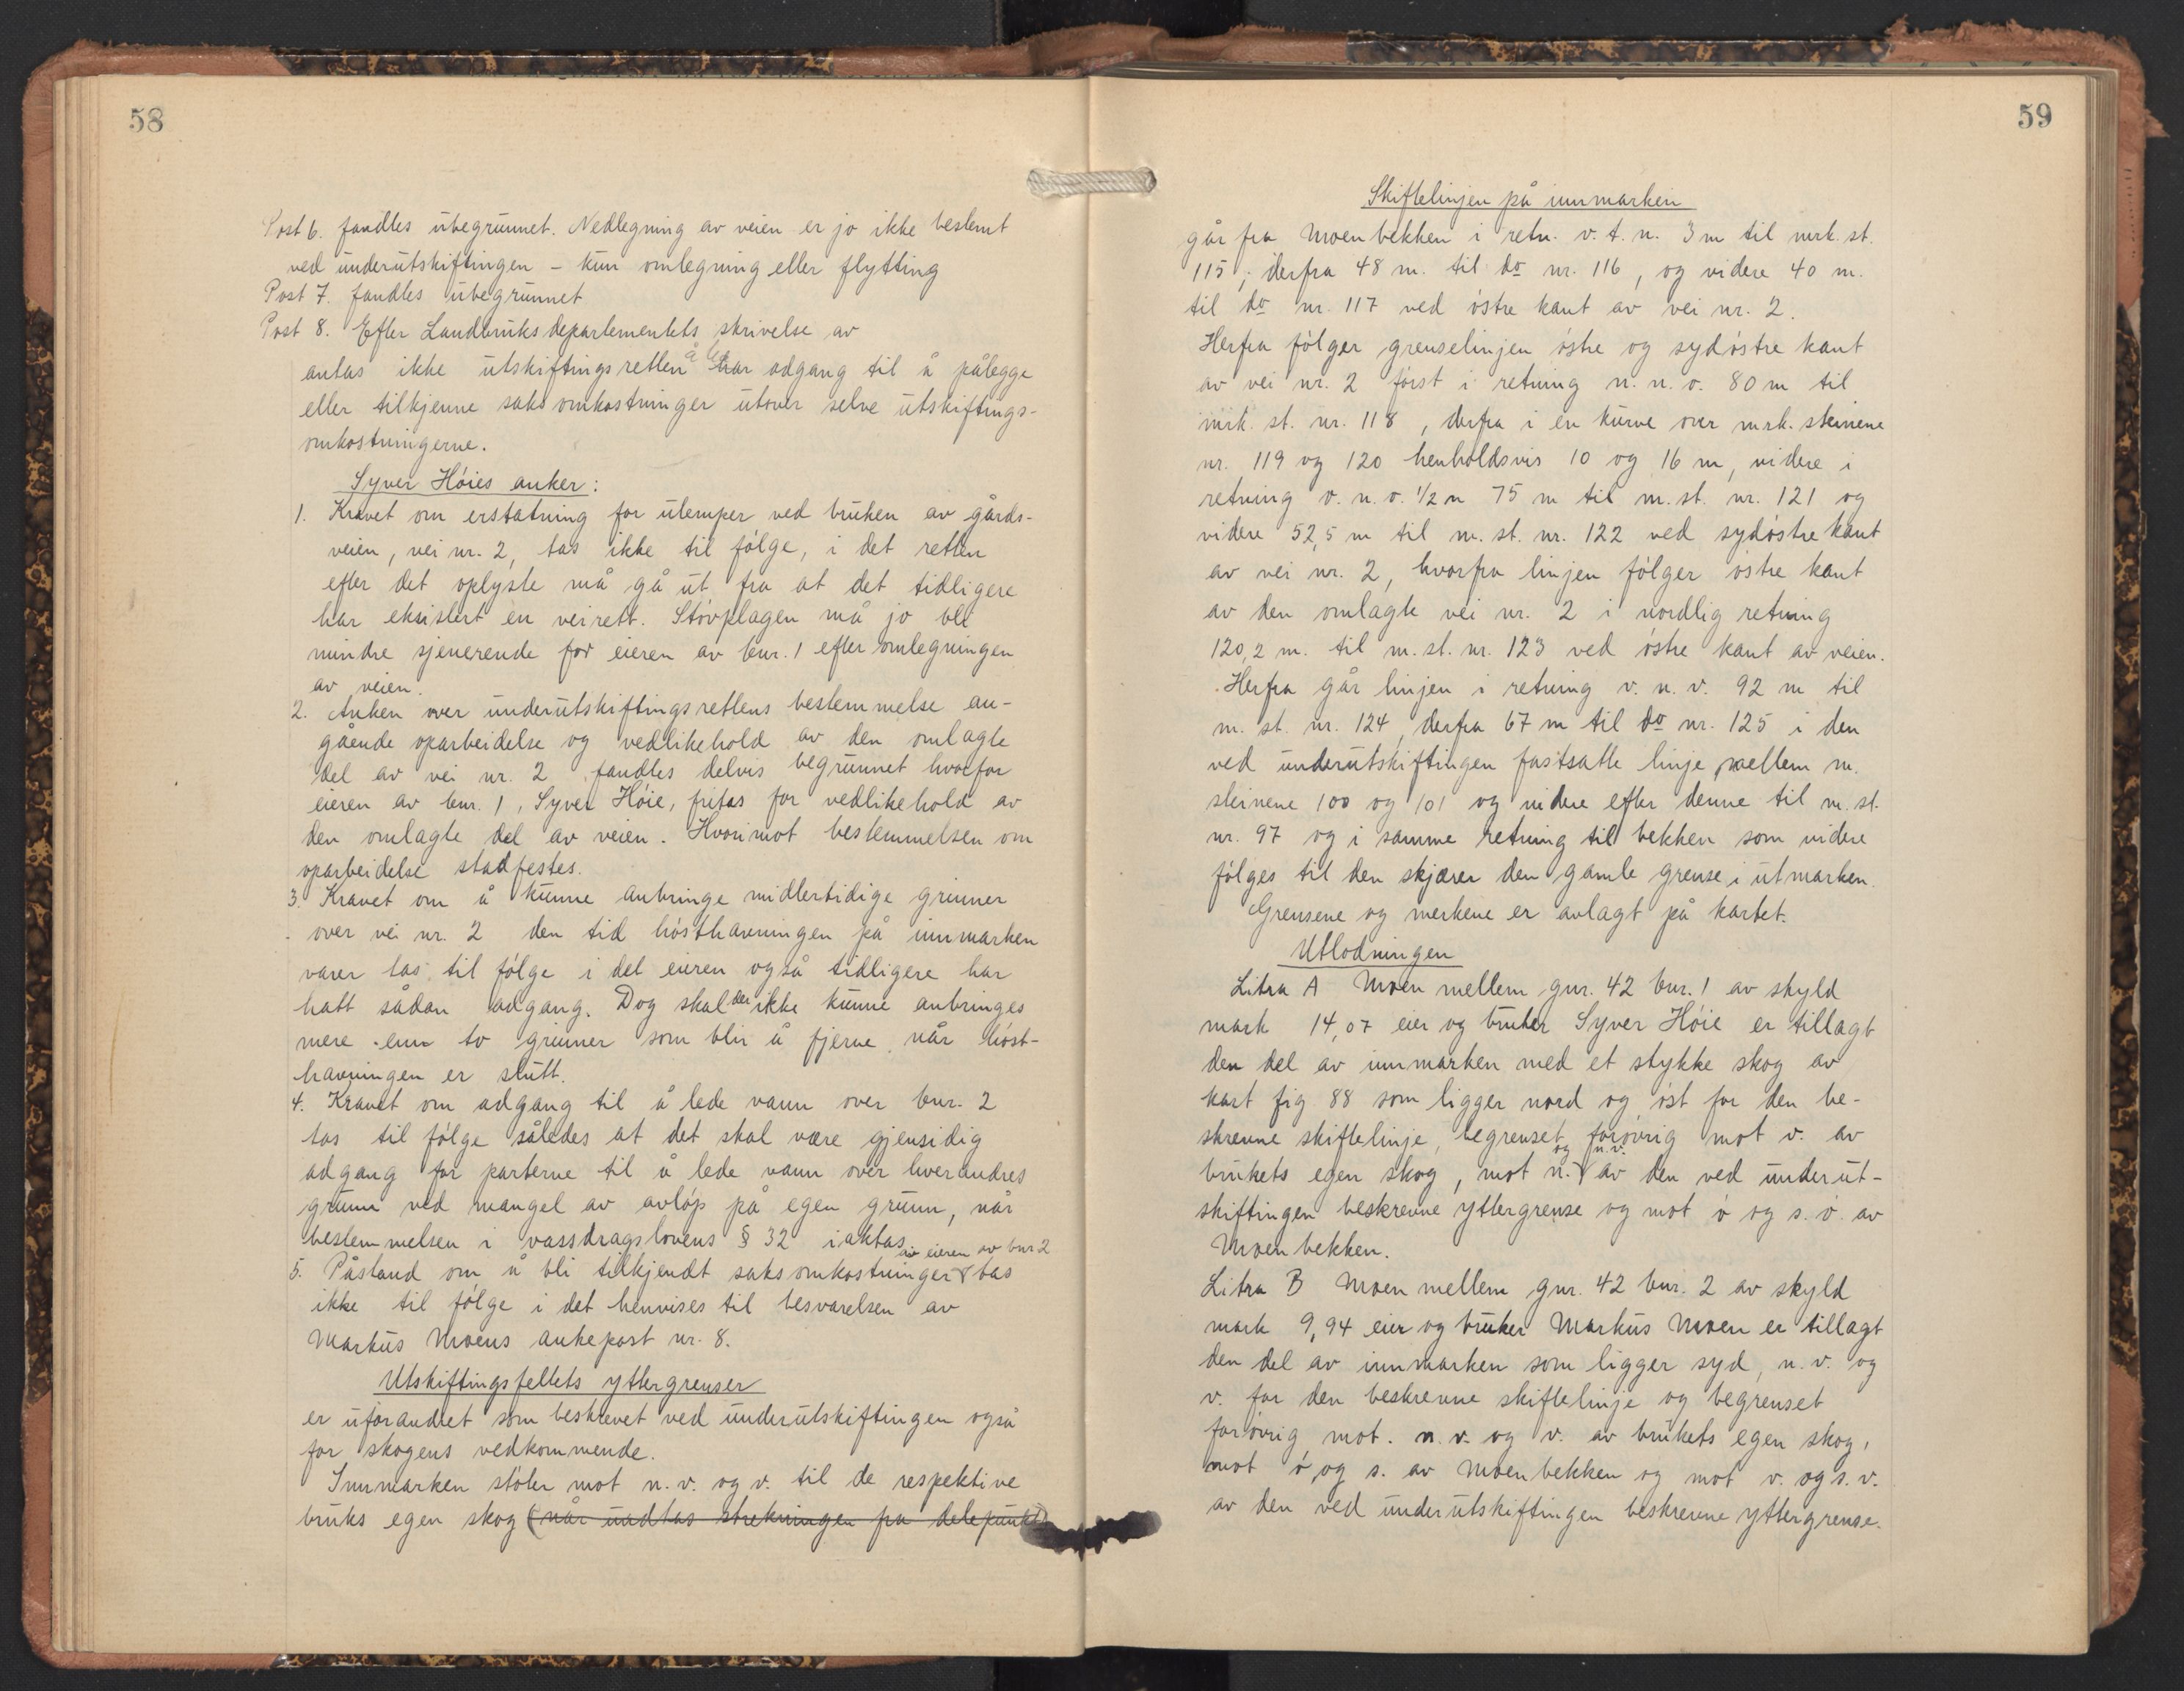 58
Post 6. fandtes ubegrunnet. Nedlegning av veien er jo ikke bestemt
ved underutskiftingen - kun omlegning eller flytting
Post 7. fandtes ubegrunnet
Post 8. Efter Landbruksdepartementets skrivelse av
antas ikke utskiftingsretten å ha adgang til å pålegge
eller tilkjenne saksomkostninger utover selve utskiftings-
omkostningerne.
Syver Höies anker:
1. Kravet om erstatning for ulemper ved bruken av gårds-
veien, vei nr. 2, tas ikke til fölge, i det retten
efter det oplyste må gå ut fra at det tidligere
har eksistert en veirett. Stövplagen må jo bli
mindre sjenerende for eieren av bnr. 1 efter omlegningen
av veien.
2. Anken over underutskiftingsrettens bestemmelse an-
gående oparbeidelse og vedlikehold av den omlagte
del av vei nr. 2 fandtes delvis begrunnet hvorfor
eieren av bnr. 1, Syver Höie, fritas for vedlikehold av
den omlagte del av veien. Hvorimot bestemmelsen om
oparbeidelse stadfestes.
3. Kravet om å kunne anbringe midlertidige grinner
over vei nr. 2 den tid hösthavningen på innmarken
varer tas til fölge i det eieren også tidligere har
hatt sådan adgang. Dog skal der ikke kunne anbringes
mere enn to grinner som blir å fjerne når höst-
havningen er slutt.
4. Kravet om adgang til å lede vann over bnr. 2
tas til fölge således at det skal være gjensidig
adgang for parterne til å lede vann over hverandres
grunn ved mangel av avlöp på egen grunn, når
bestemmelsen i vassdragslovens § 32 iaktas.
av eieren av bnr 2
5. Påstand om å bli tilkjendt saksomkostninger tas
ikke til fölge i det henvises til besvarelsen av
Markus Moens ankepost nr. 8.
Utskiftingsfeltets yttergrenser
er uforandret som beskrevet ved underutskiftingen også
for skogens vedkommende.
Innmarken stöter mot n.v. og v. til de respektive
bruks egen skog (når undtas strekningen fra delepunkt)
59
Skiftelinjen på innmarken
går fra Moenbekken i retn. v. t. n. 3 m til mrk. st.
115, derfra 48 m. til do nr. 116, og videre 40 m.
til do nr. 117 ved östre kant av vei nr. 2.
Herfra fölger grenselinjen östre og sydöstre kant
av vei nr. 2 först i retning n. n. o. 80 m til
mrk. st. nr. 118, derfra i en kurve over mrk. steinene
nr. 119 og 120 henholdsvis 10 og 16 m, videre i
retning o. n. o. 1/2 n 75 m til m. st. nr. 121 og
videre 52,5 m til m. st. nr. 122 ved sydöstre kant
av vei nr. 2, hvorfra linjen fölger östre kant
av den omlagte vei nr. 2 i nordlig retning
120,2 m. til m. st. nr. 123 ved östre kant av veien.
Herfra går linjen i retning v. n. v. 92 m til
m. st. nr. 124, derfra 67 m til do nr. 125 i den
ved underutskiftingen fastsatte linje mellem m.
steinene 100 og 101 og videre efter denne til m. st.
nr. 97 og i samme retning til bekken som videre
fölges til den skjærer den gamle grense i utmarken.
Grensene og merkene er avlagt på kartet.
Utlodningen
Litra A Moen mellem gnr. 42 bnr. 1 av skyld
mark 14,07 eier og bruker Syver Höie er tillagt
den del av innmarken med et stykke skog av
kart fig 88 som ligger nord og öst for den be-
skrevne skiftelinje, begrenset forövrig mot v. av
og n.v.
brukets egen skog, mot n. av den ved underut-
skiftingen beskrevne yttergrense og mot ö og s. ö. av
Moenbekken.
Litra B Moen mellem gnr. 42 bnr. 2 av skyld
mark 9,94 eier og bruker Markus Moen er tillagt
den del av innmarken som ligger syd, n. v. og
v. for den beskrevne skiftelinje og begrenset
forövrig mot. n. v. og v. av brukets egen skog,
mot ö og s. av Moenbekken og mot v. og s. v.
av den ved underutskiftingen beskrevne yttergrense.